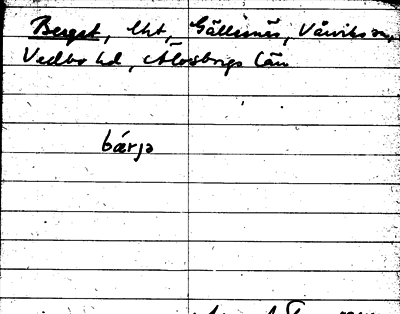 Berget, lht, Gällsnäs, Vårviks sn,
Vedbo hd, Älvsborgs län
bǽrjə